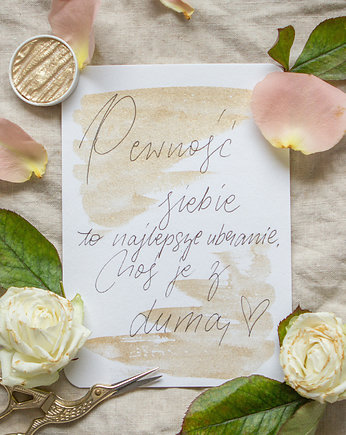 Pewność
siebie
to najlepsze ubranie.
Noś je z
dumą